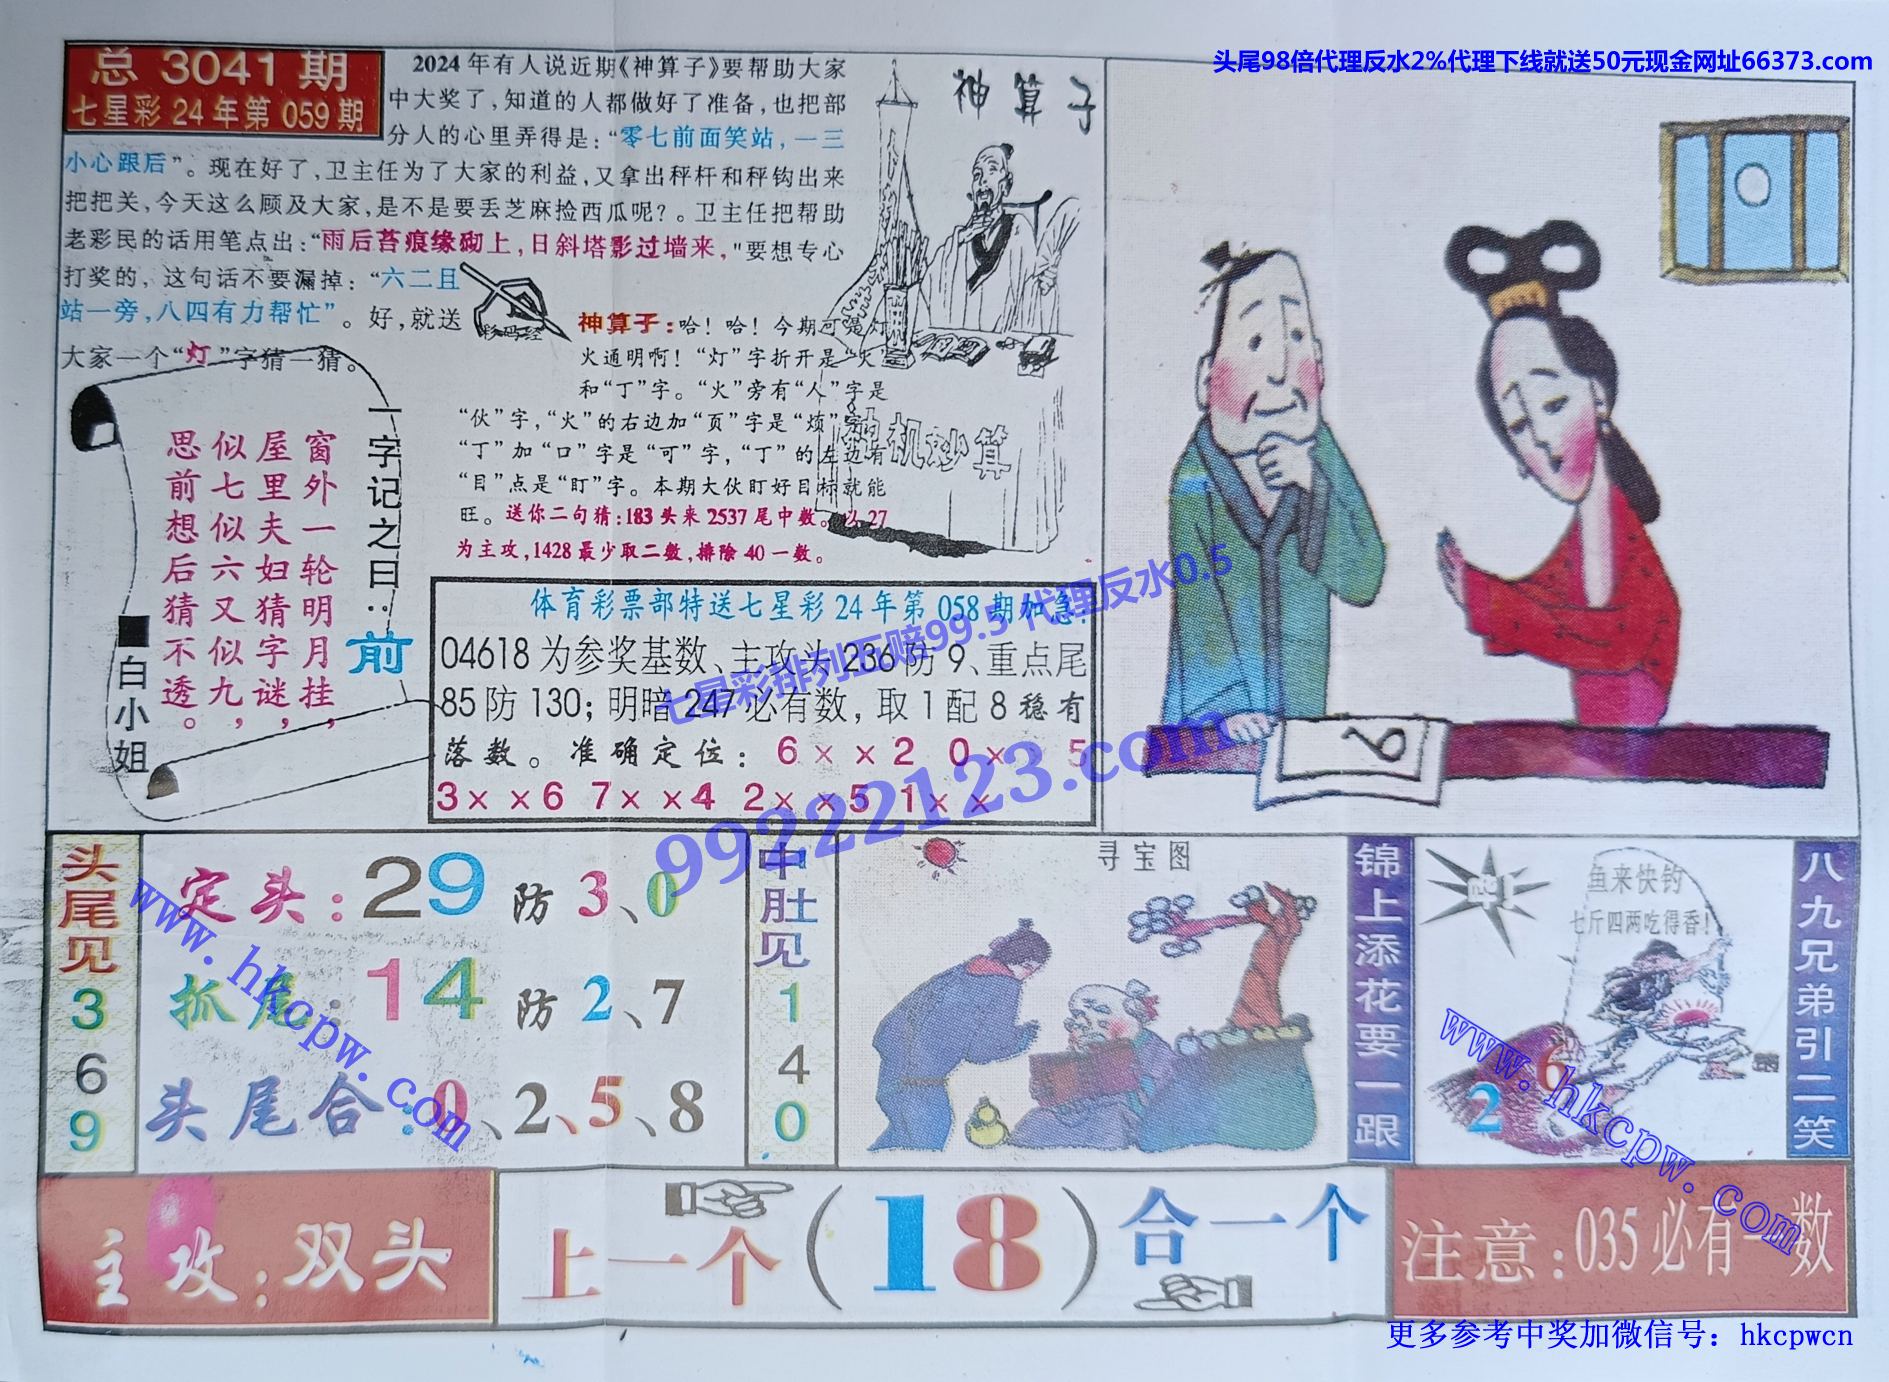 头尾98倍代理反水2%代理下线就送50元现金网址66373.com
总 3041 期
七星彩 24 年第 059 期
2024 年有人说近期《神算子》要帮助大家
中大奖了，知道的人都做好了准备，也把部
分人的心里弄得是：“零七前面笑站，一三
小心跟后”。现在好了，卫主任为了大家的利益，又拿出秤杆和秤钩出来
把把关，今天这么顾及大家，是不是要丢芝麻捡西瓜呢？。卫主任把帮助
老彩民的话用笔点出：“雨后苔痕缘砌上，日斜塔影过墙来，"要想专心
打奖的，这句话不要漏掉：“六二且
站一旁，八四有力帮忙”。好，就送
大家一个“灯”字猜一猜。
神算子
彩码经
神算子：哈！哈！今期可是灯
火通明啊！“灯”字折开是“火”
和“丁”字。“火”旁有“人”字是
“伙”字，“火”的右边加“页”字是“烦”字，
“丁”加“口”字是“可”字，“丁”的左边有
“目”点是“盯”字。本期大伙盯好目标就能
旺。送你二句猜：183 头来 2537 尾中数。以 27
为主攻，1428 最少取二数，排除 40 一数。
神机妙算
一字记之曰：前
窗外一轮明月挂，
屋里夫妇猜字谜，
似七似六又似九，
思前想后猜不透。
■白小姐
体育彩票部特送七星彩 24 年第 058 期加急：
04618 为参奖基数、主攻为 236 防 9、重点尾
85 防 130；明暗 247 必有数，取 1 配 8 稳有
落数。准确定位：6××2 0××5
3××6 7××4 2××5 1××
七星彩排列五赔99.5 代理反水0.5
99222123.com
头尾见369
定头：29 防 3、0
抓尾：14 防 2、7
头尾合：0、2、5、8
www.hkcpw.com
中肚见140
寻宝图
锦上添花要一跟
鱼来快钓
七斤四两吃得香！
2 6
www.hkcpw.com
八九兄弟引二笑
主攻：双头
上一个（18）合一个
注意：035 必有一数
更多参考中奖加微信号：hkcpwcn